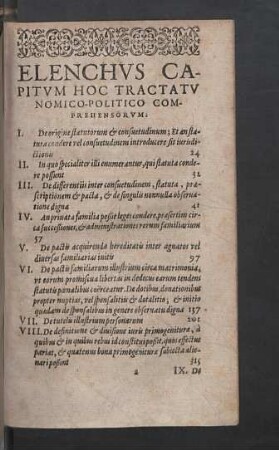 ELENCHVS CA-
PITVM HOC TRACTATV
NOMICO-POLITICO COM-
PREHENSORVM:
I. De origine statutorum & consuetudinum; Et an sta-
tura condere vel consuetudinem introducere sit iurisdi-
ctionis 24
II. In quo specialiter illi enumerantur, qui statuta conde-
re possunt 32
III. De differentiis inter consuetudinem, statuta, præ-
scriptionem & pacta, & de singulis nonnulla observa-
tione digna 41
IV. An privata familia possit leges condere, præsertim circa
successiones, & administrationes rerum familiarium
57
V. De pactis acquirenda hereditatis inter agnatos vel
diversas familias initis 97
VI. De pactis familiarum illustrium circa matrimonia,
ut eorum promiscua libertas in dedecus earum tendens
statutis pœnalibus coërceatur. De dotibus, donationibus
propter nuptias, vel sponsalitiis & dotalitiis, & initio
quædam de sponsalibus in genere observatu digna 137
VII. De tutelis illustrium personarum 202
VIII. De definitione & divisione iuris primogenitura, à
quibus & in quibus rebus id constitui possit, quos effectus
pariat, & quatenus bona primogenitura subiecta alie-
nari possint 315
a IX. De